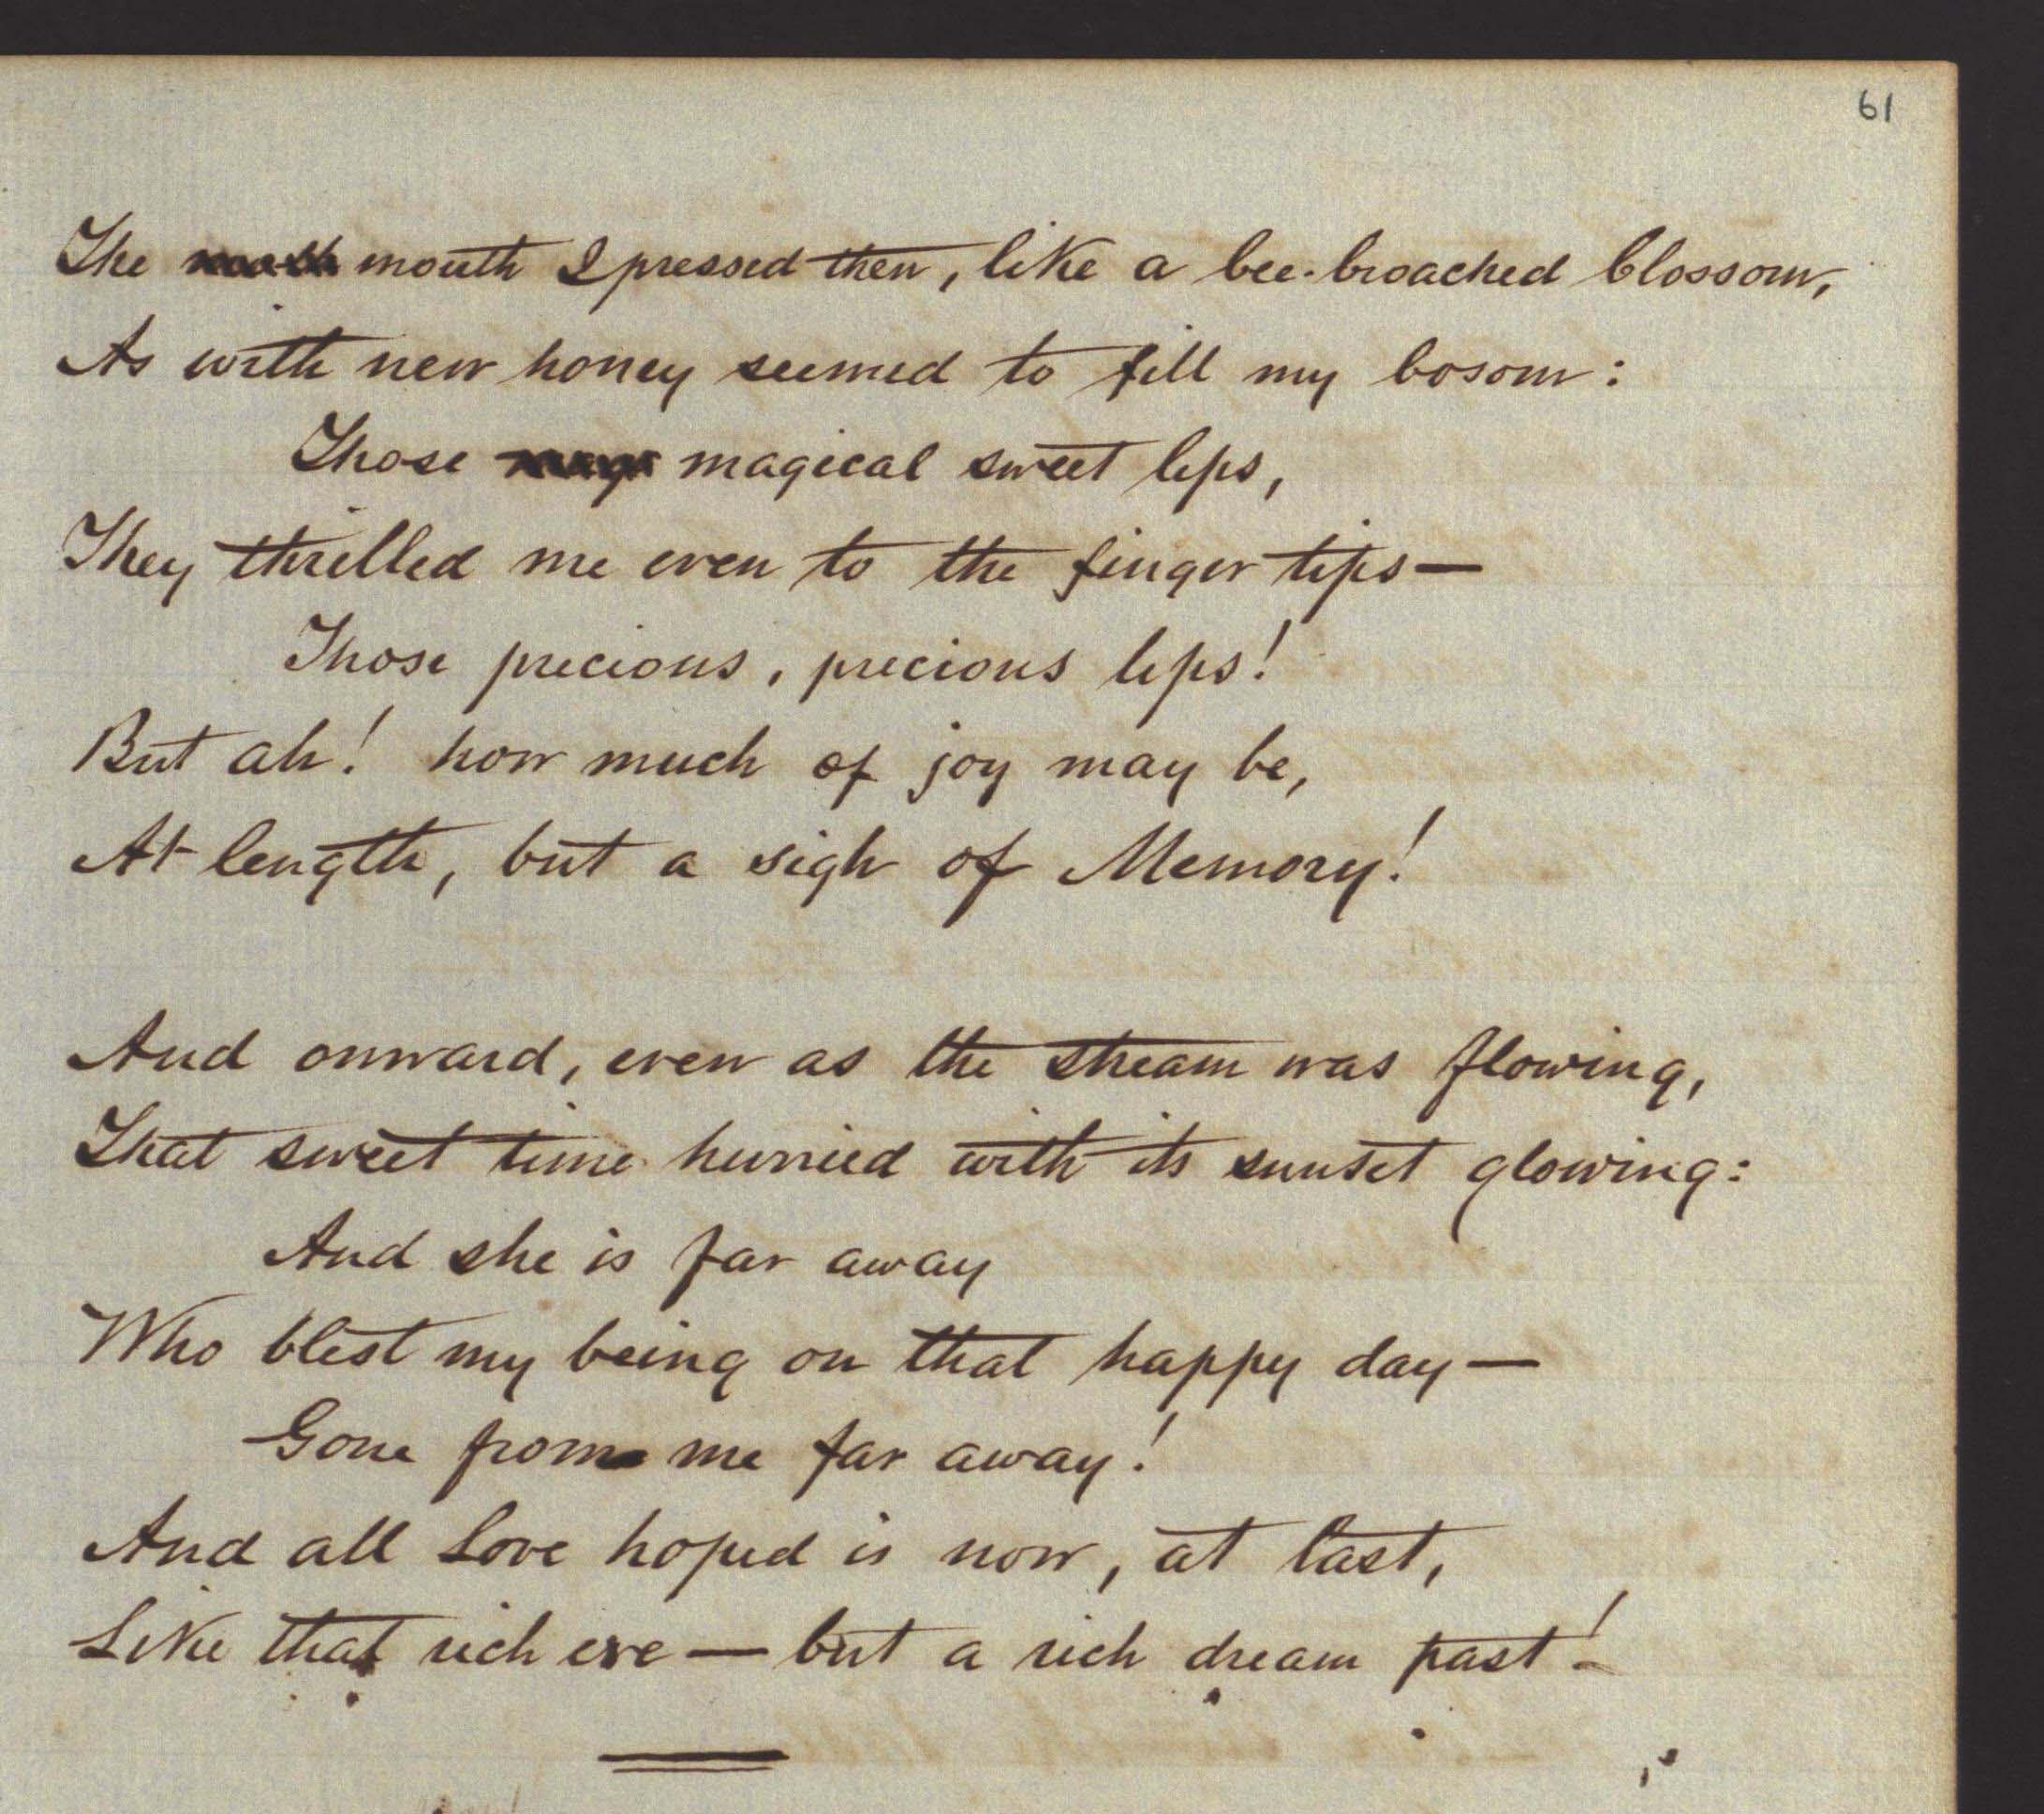 61
The mouth I pressed then, like a bee-broached blossom,
As with new honey seemed to fill my bosom:
Those magical sweet lips,
They thrilled me even to the finger tips—
Those precious, precious lips!
But ah! how much of joy may be,
At length, but a sigh of Memory!
And onward, even as the stream was flowing,
That sweet time hurried with its sunset glowing:
And she is far away
Who blest my being on that happy day—
Gone from me far away!
And all Love hoped is now, at last,
Like that rich eve — but a rich dream past!